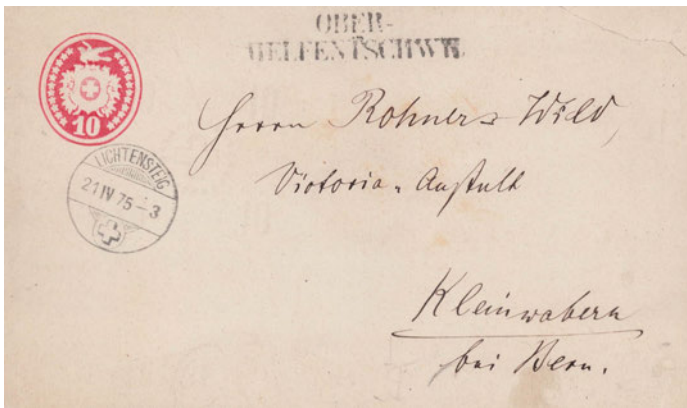 OBER-
HELFENTSCHWYL
10
LICHTENSTEIG
21 IV 75 - 3
Herrn Rohner-Wild,
Victoria-Anstalt
Kleinwabern
bei Bern.